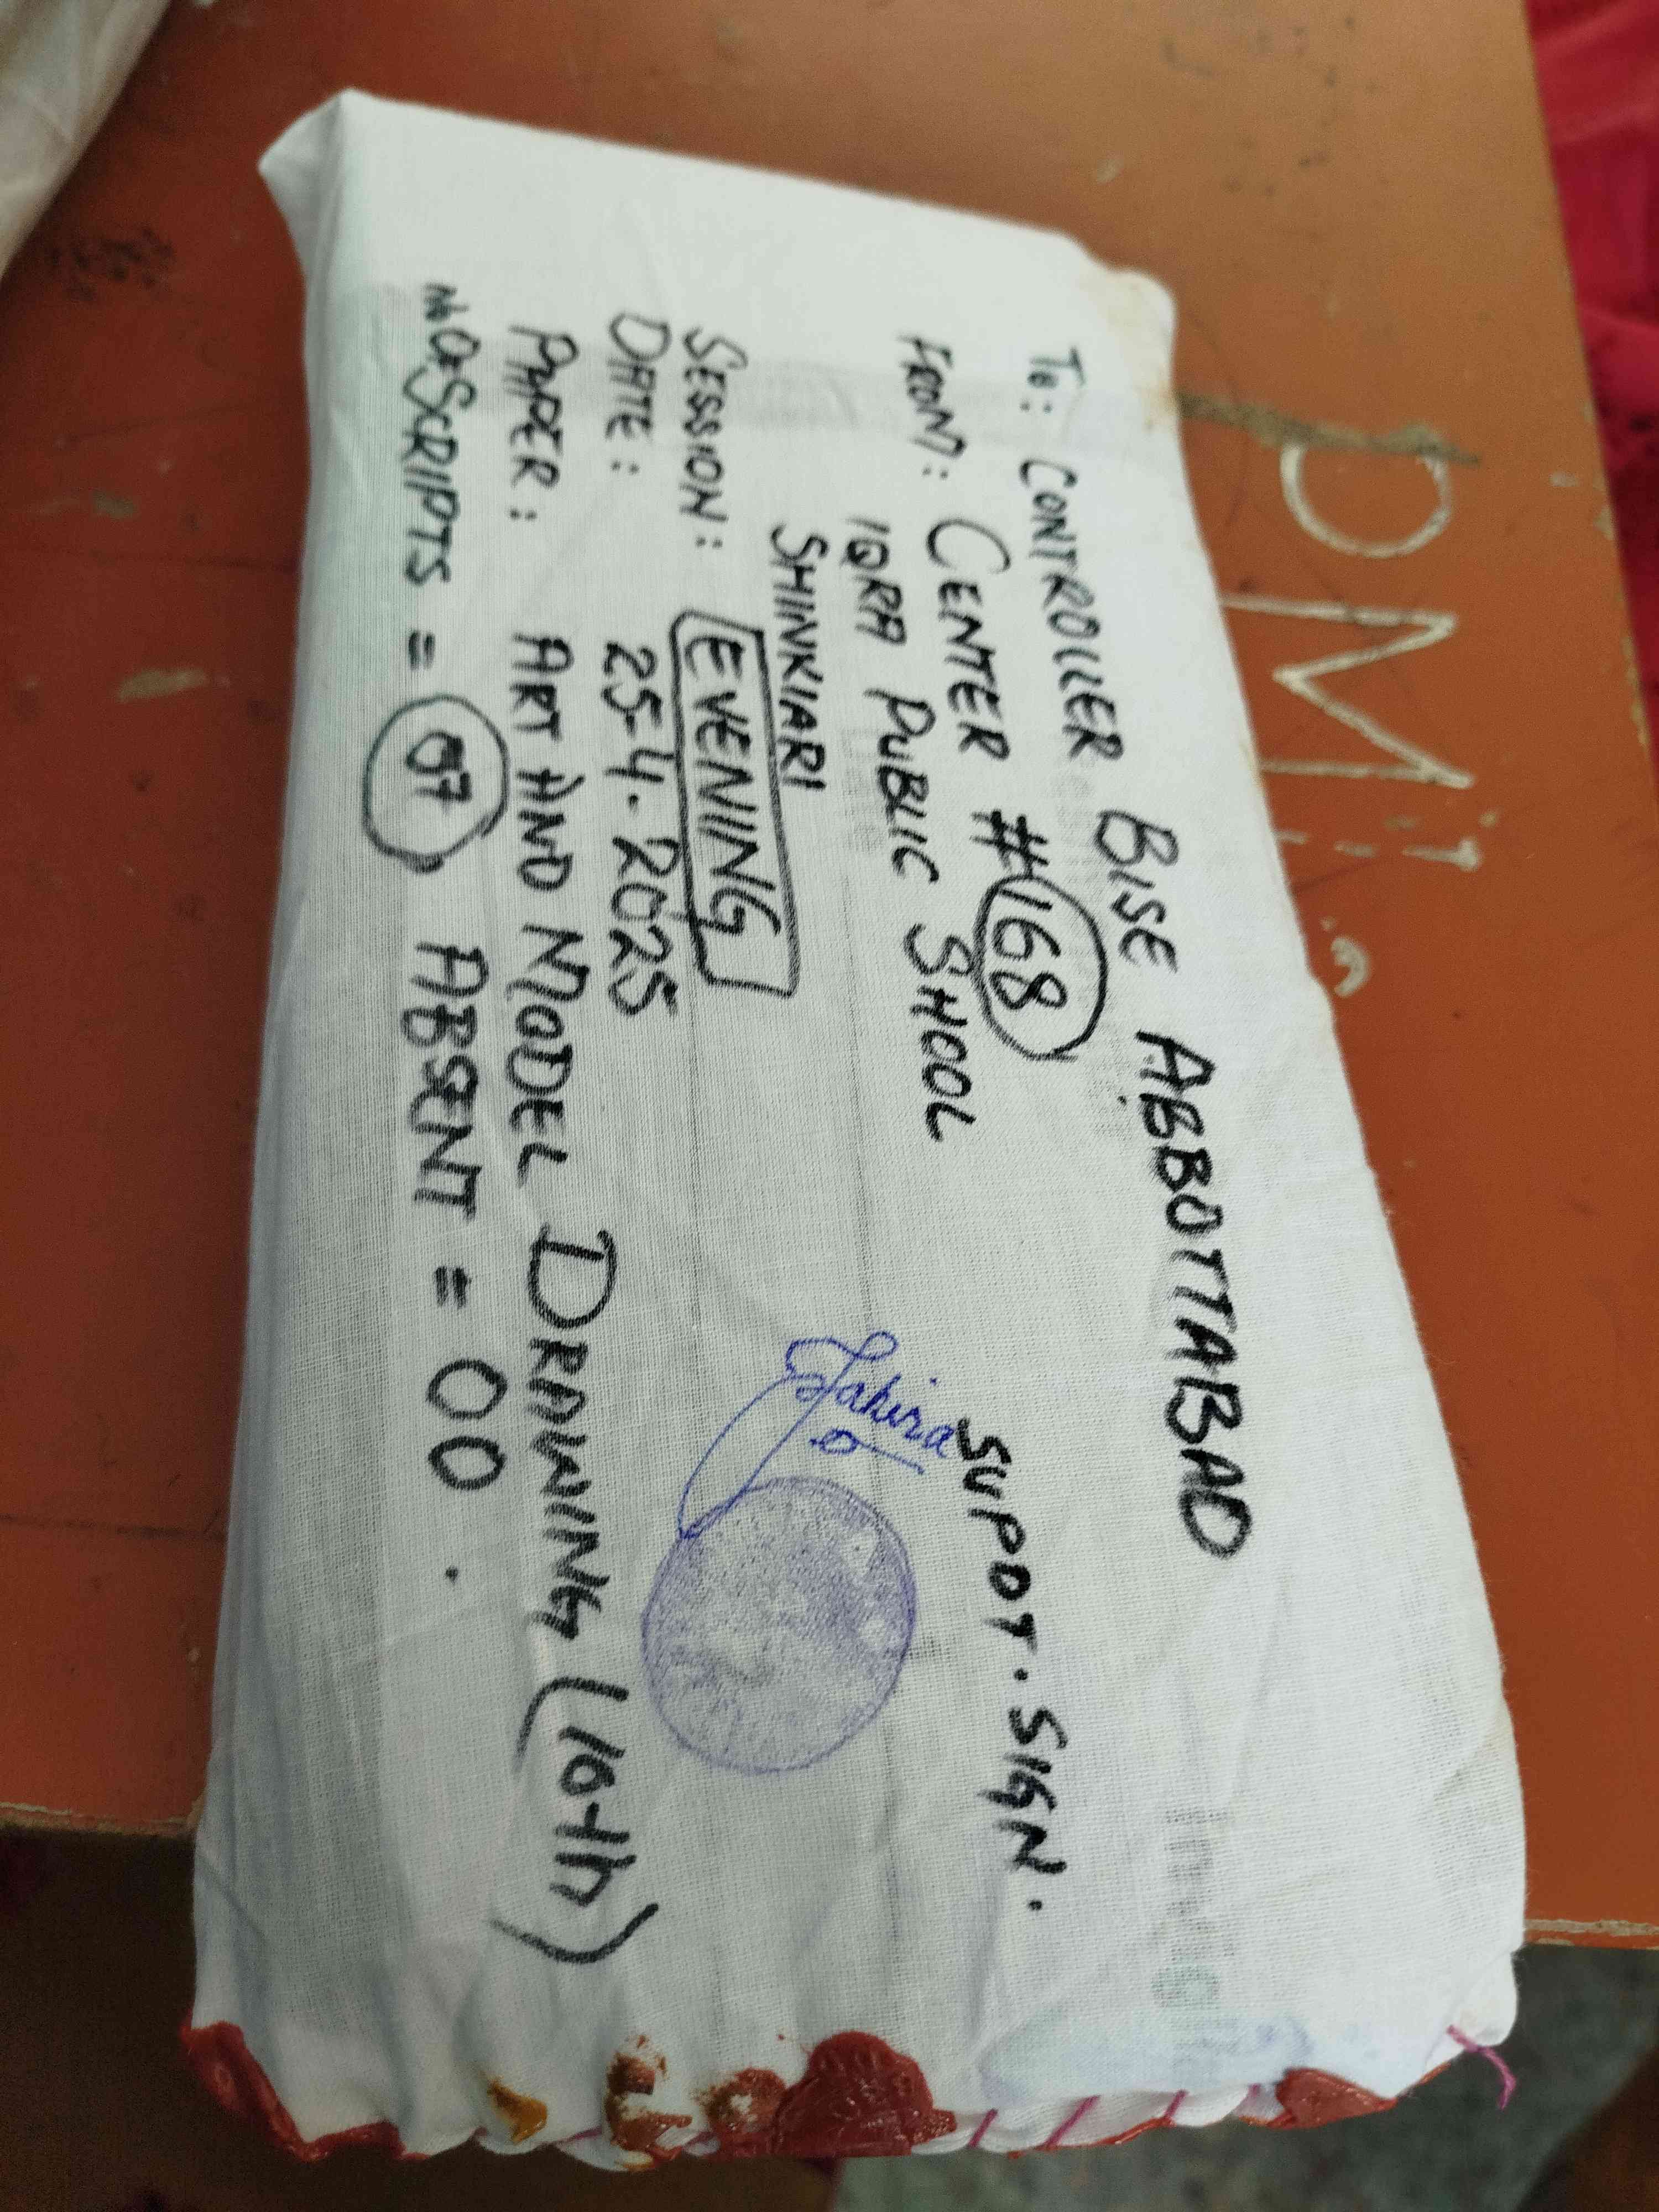 To: CONTROLLER BISE ABBOTTABAD
FROM: CENTER #168
IQRA PUBLIC SHOOL
SHINKIARI
SUPDT. SIGN.
Tahira
SESSION: EVENING
DATE: 25-4-2025
PAPER: ART AND MODEL DRAWING (10th)
No OF SCRIPTS = 07, ABSENT = 00.
PM